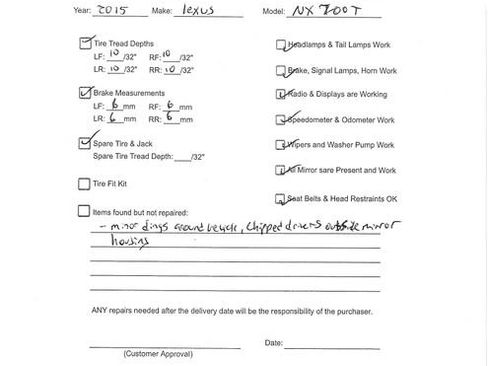 Year: 2015 Make: lexus Model: NX 200T
Tire Tread Depths
LF: 10 /32" RF: 10 /32"
LR: 10 /32" RR: 10 /32"
Brake Measurements
LF: 6 mm RF: 6 mm
LR: 6 mm RR: 6 mm
Spare Tire & Jack
Spare Tire Tread Depth: ____/32"
Tire Fit Kit
Headlamps & Tail Lamps Work
Brake, Signal Lamps, Horn Work
Radio & Displays are Working
Speedometer & Odometer Work
Wipers and Washer Pump Work
All Mirror sare Present and Work
Seat Belts & Head Restraints OK
Items found but not repaired:
- minor dings around vehicle, chipped drivers outside mirror
housing
ANY repairs needed after the delivery date will be the responsibility of the purchaser.
Date:
(Customer Approval)